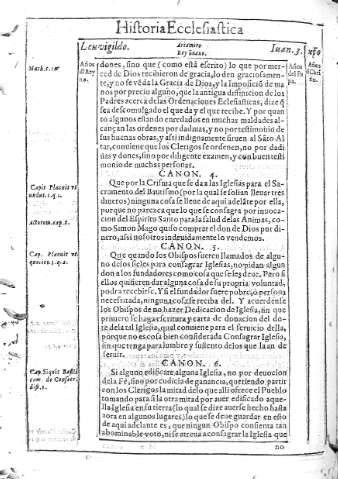 Historia Ecclesiastica
Leuvigildo.
Ariamiro
Rey Sueuo.
Iuan. 3.
Años
del Rey
no.
Años
del Pa
pa.
Años
de Christo
Matth. c. 10.
dones, sino que (como está escrito) lo que por mer-
ced de Dios recibieron de gracia, lo den graciosamen-
te, y no se vēda la Gracia de Dios, y la Imposiciō de ma
nos por precio alguno, que la antigua difinicion de los
Padres acerca de las Ordenaciones Eclesiasticas, dize q̄
sea descomulgado el que da y el que recibe. Y por quan
to algunos estando enredados en muchas maldades al-
cançan las ordenes por dadiuas, y no por testimonio de
sus buenas obras, y assi indignamente siruen al Sāto Al
tar, conuiene que los Clerigos se ordenen, no por dadi
uas y dones, sino por diligente examen, y con buen testi
monio de muchas personas.
CANON. 4.
Que por la Crisma que se da a las Iglesias para el Sa-
cramento del Bautismo (por la qual se solian lleuar tres
dineros) ninguna cosa se lleue de aqui adelāte por ella,
porque no parezca que lo que se consagra por inuoca
cion del Espiritu Santo para la salud de las Animas, co-
mo Simon Mago quiso comprar el don de Dios por di
nero, assi nosotros indeuidamente lo vendemos.
Capit. Placuit vt
CANON. 5.
Cap. Placuit vt
Que quando los Obispos fueren llamados de algu-
no de los fieles para consagrar Iglesias, no pidan algun
don a los fundadores como cosa que se les deue. Pero si
ellos quisieren dar alguna cosa de su propria voluntad,
podra recebirse. Y si el fundador fuere pobre, o persona
necessitada, ninguna cosa se reciba del. Y acuerdense
los Obispos de no hazer Dedicacion de Iglesia, sin que
primero se haga escritura y carta de donacion del do-
te de la tal Iglesia, qual conuiene para el seruicio della,
porque no es cosa bien considerada Consagrar Iglesia,
sin que tenga para lumbre y sustento de los que la an de
seruir.
CANON. 6.
Cap. Siquis Basili
cam de Consecr.
dist. 1.
Si alguno edificare alguna Iglesia, no por deuocion
de la Fé, sino por codicia de ganancia, queriendo partir
con los Clerigos la mitad de lo que alli ofrece el Pueblo
tomando para si la otra mitad por auer edificado aque-
lla Iglesia en su tierra (lo qual se dize auerse hecho hasta
aora en algunos lugares) lo que se deue guardar en esto
de aqui adelante es, que ningun Obispo consienta tan
abominable voto, ni se atreua a consagrar la Iglesia que
no